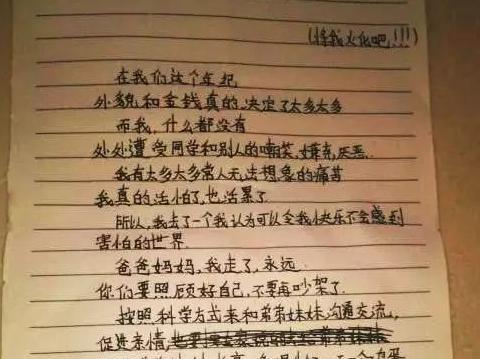 (将我火化吧!!!)
在我们这个年纪
外貌和金钱真的决定了太多太多
而我,什么都没有
处处遭受同学和别人的嘲笑,嫌弃,厌恶.
我有太多太多常人无法想象的痛苦
我真的活怕了,也活累了
所以,我去了一个我认为可以令我快乐不会感到
害怕的世界.
爸爸妈妈,我走了,永远.
你们要照顾好自己,不要再吵架了.
按照科学方式来和弟弟妹妹沟通交流,
促进亲情,